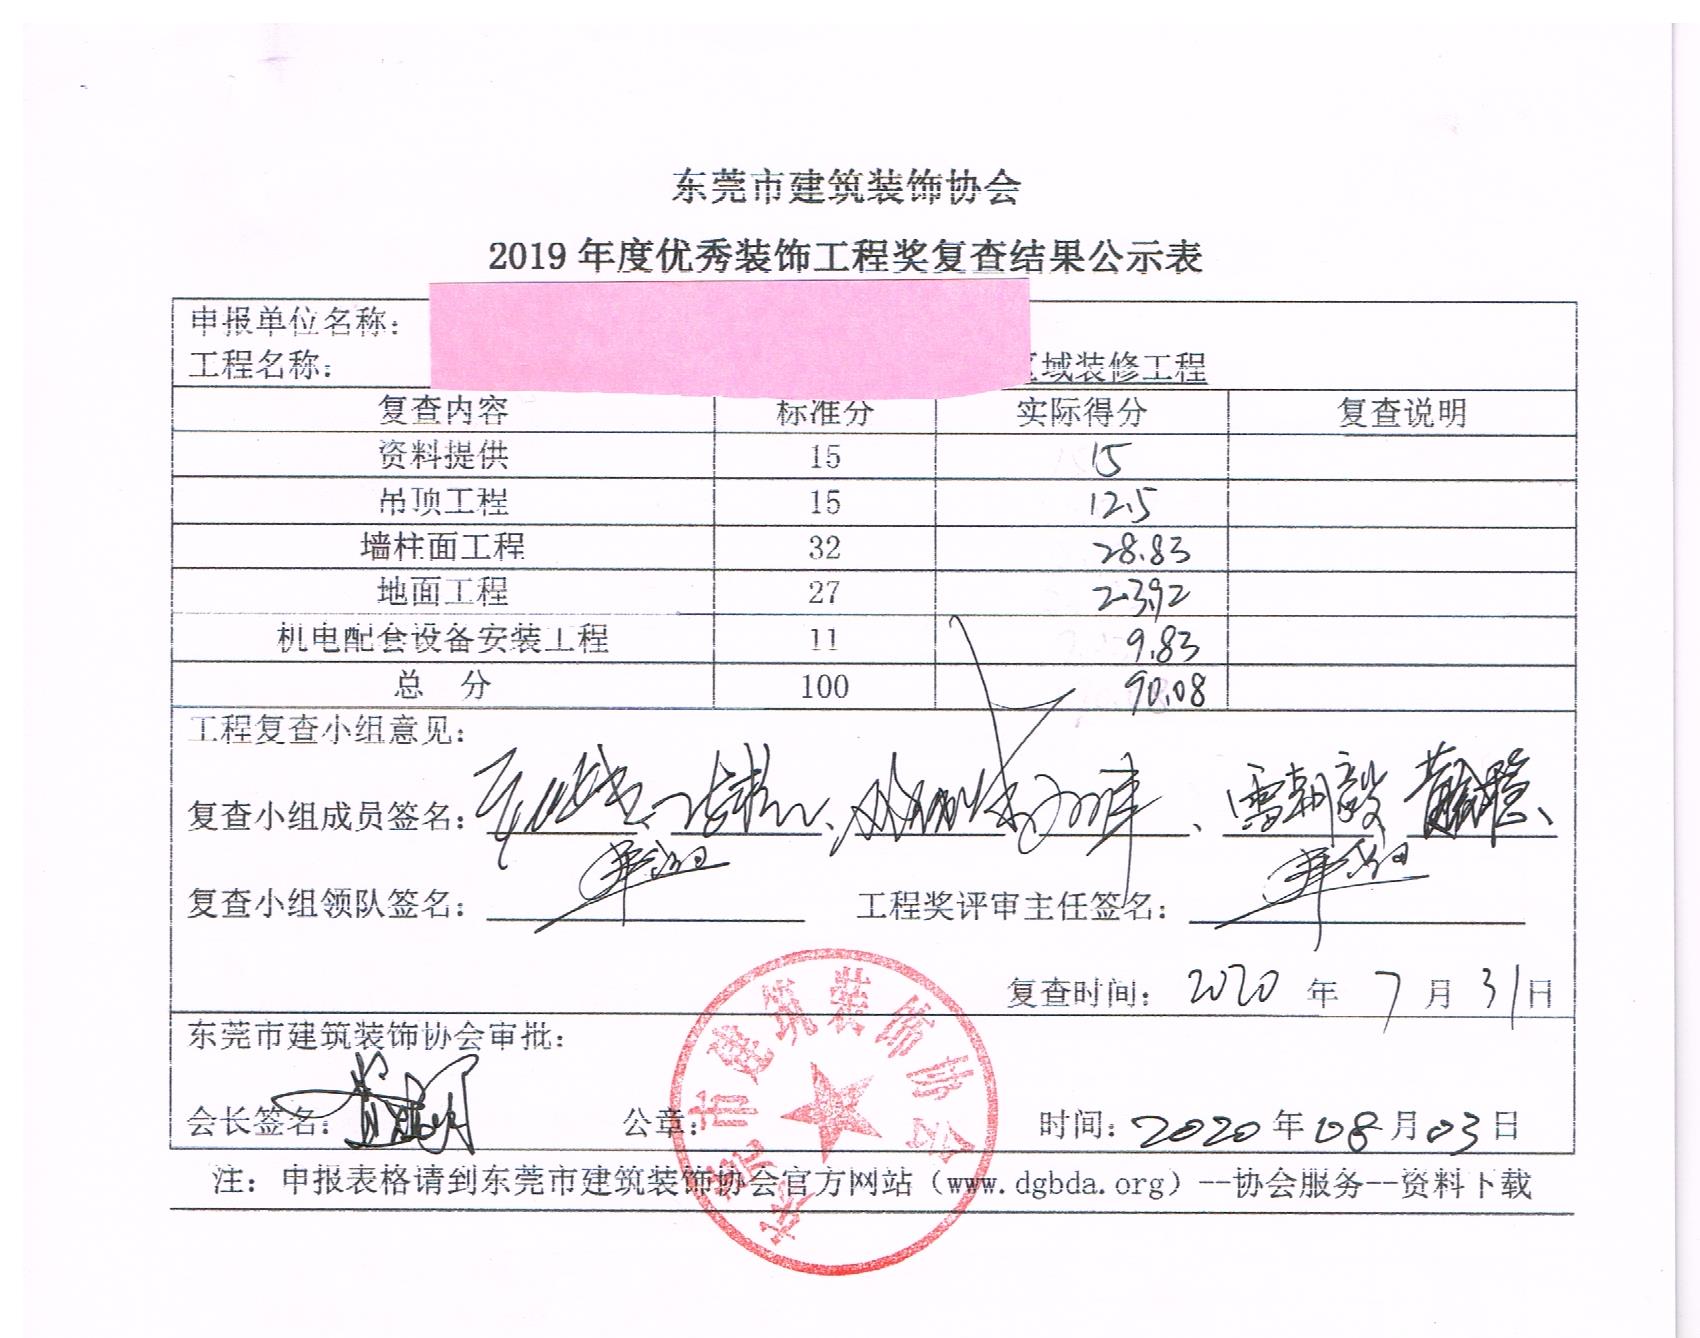 东莞市建筑装饰协会
2019年度优秀装饰工程奖复查结果公示表
申报单位名称:
工程名称: 区域装修工程
复查内容 标准分 实际得分 复查说明
资料提供 15 15
吊顶工程 15 12.5
墙柱面工程 32 28.83
地面工程 27 23.92
机电配套设备安装工程 11 9.83
总 分 100 90.08
工程复查小组意见:
复查小组成员签名:
复查小组领队签名: 工程奖评审主任签名:
复查时间: 2020 年 7 月 31 日
东莞市建筑装饰协会审批:
会长签名: 公章: 时间: 2020 年 08 月 03 日
东莞市建筑装饰协会
注: 申报表格请到东莞市建筑装饰协会官方网站（www.dgbda.org）--协会服务--资料下载